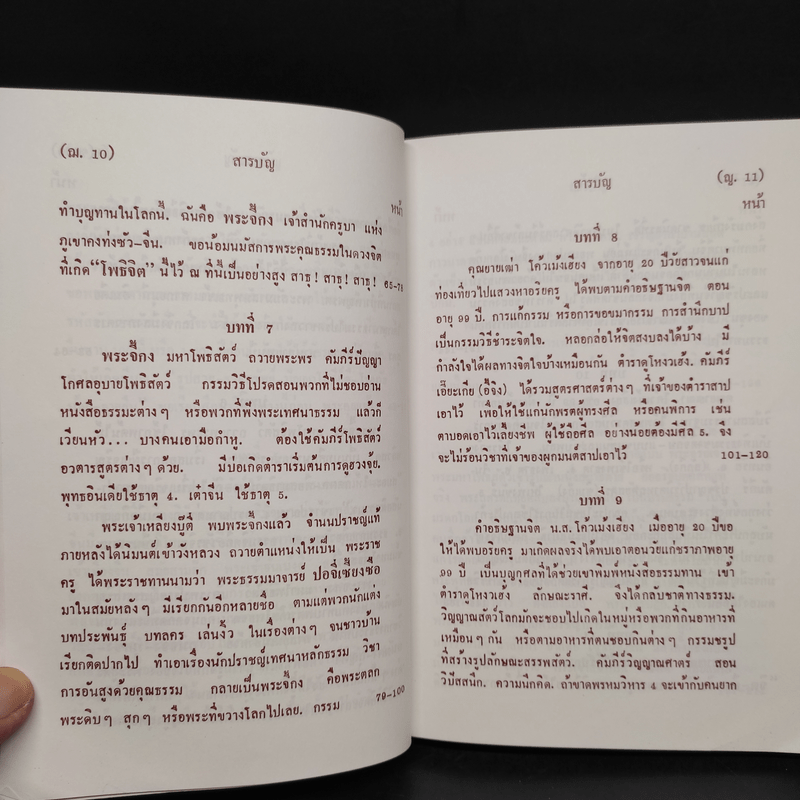 (ฌ. 10)
สารบัญ
หน้า
ทำบุญทานในโลกนี้. ฉันคือ พระจี้กง เจ้าสำนักครูบา แห่ง
ภูเขาคงท่งซัว-จีน. ขอน้อมนมัสการพระคุณธรรมในดวงจิต
ที่เกิด“โพธิจิต” นี้ไว้ ณ ที่นี้เป็นอย่างสูง สาธุ! สาธุ! สาธุ! 65-78
บทที่ 7
พระจี้กง มหาโพธิสัตว์ ถวายพระพร คัมภีร์ปัญญา
โกศลอุบายโพธิสัตว์ กรรมวิธีโปรดสอนพวกที่ไม่ชอบอ่าน
หนังสือธรรมะต่างๆ หรือพวกที่พึ่งพระเทศนาธรรม แล้วก็
เวียนหัว... บางคนเอามือกำหู. ต้องใช้คัมภีร์โพธิสัตว์
อวตารสูตรต่างๆด้วย. มีบ่อเกิดตำราเริ่มต้นการดูฮวงจุ้ย.
พุทธอินเดียใช้ธาตุ 4. เต๋าจีน ใช้ธาตุ 5.
พระเจ้าเหลียงบู๊ตี่ พบพระจี้กงแล้ว จำนนปราชญ์แท้
ภายหลังได้นิมนต์เข้าวังหลวง ถวายตำแหน่งให้เป็น พระราช
ครู ได้พระราชทานนามว่า พระธรรมมาจารย์ ปอจี่เซี้ยงซือ
มาในสมัยหลังๆ มีเรียกกันอีกหลายชื่อ ตามแต่พวกนักแต่ง
บทประพันธุ์ บทลคร เล่นงิ้ว ในเรื่องต่างๆ จนชาวบ้าน
เรียกติดปากไป ทำเอาเรื่องนักปราชญ์เทศนาหลักธรรม วิชา
การอันสูงด้วยคุณธรรม กลายเป็นพระจี้กง คือพระตลก
พระดิบๆ สุกๆ หรือพระที่ขวางโลกไปเลย. กรรม 79-100
สารบัญ
(ญ. 11)
หน้า
บทที่ 8
คุณยายเฒ่า โค้วเม้งเฮียง จากอายุ 20 ปีวัยสาวจนแก่
ท่องเที่ยวไปแสวงหาอริยครู ได้พบตามคำอธิษฐานจิต ตอน
อายุ 99 ปี. การแก้กรรม หรือการขอขมากรรม การสำนึกบาป
เป็นกรรมวิธีชำระจิตใจ. หลอกล่อให้จิตสงบลงได้บ้าง มี
กำลังใจได้ผลทางจิตใจบ้างเหมือนกัน ตำราดูโหงวเฮ้ง. คัมภีร์
เอี๊ยะเกีย (อี้จิง) ได้รวมสูตรศาสตร์ต่างๆ ที่เจ้าของตำราสาป
เอาไว้ เพื่อให้ใช้แก่นักพรตผู้ทรงศีล หรือคนพิการ เช่น
ตาบอดเอาไว้เลี้ยงชีพ ผู้ใช้ถือศีล อย่างน้อยต้องมีศีล 5. จึง
จะไม่ร้อนวิชาที่เจ้าของผูกมนต์สาปเอาไว้ 101-120
บทที่ 9
คำอธิษฐานจิต น.ส.โค้วเม้งเฮียง เมื่ออายุ 20 ปีขอ
ให้ได้พบอริยครู มาเกิดผลจริงได้พบเอาตอนวัยแก่ชราภาพอายุ
99 ปี เป็นบุญกุศลที่ได้ช่วยเขาพิมพ์หนังสือธรรมทาน เข้า
ตำราดูโหงวเฮ้ง ลักษณะราศี. จึงได้กลับชาติทางธรรม.
วิญญาณสัตว์โลกมักจะชอบไปเกิดในหมู่หรือพวกที่กินอาหารที่
เหมือนๆกัน หรือตามอาหารที่ตนชอบกินต่างๆ กรรมชรูป
ที่สร้างรูปลักษณะสรรพสัตว์. คัมภีร์วิญญาณศาตร์ สอน
วิปัสสนึก. ความนึกคิด. ถ้าขาดพรหมวิหาร 4 จะเข้ากับคนยาก